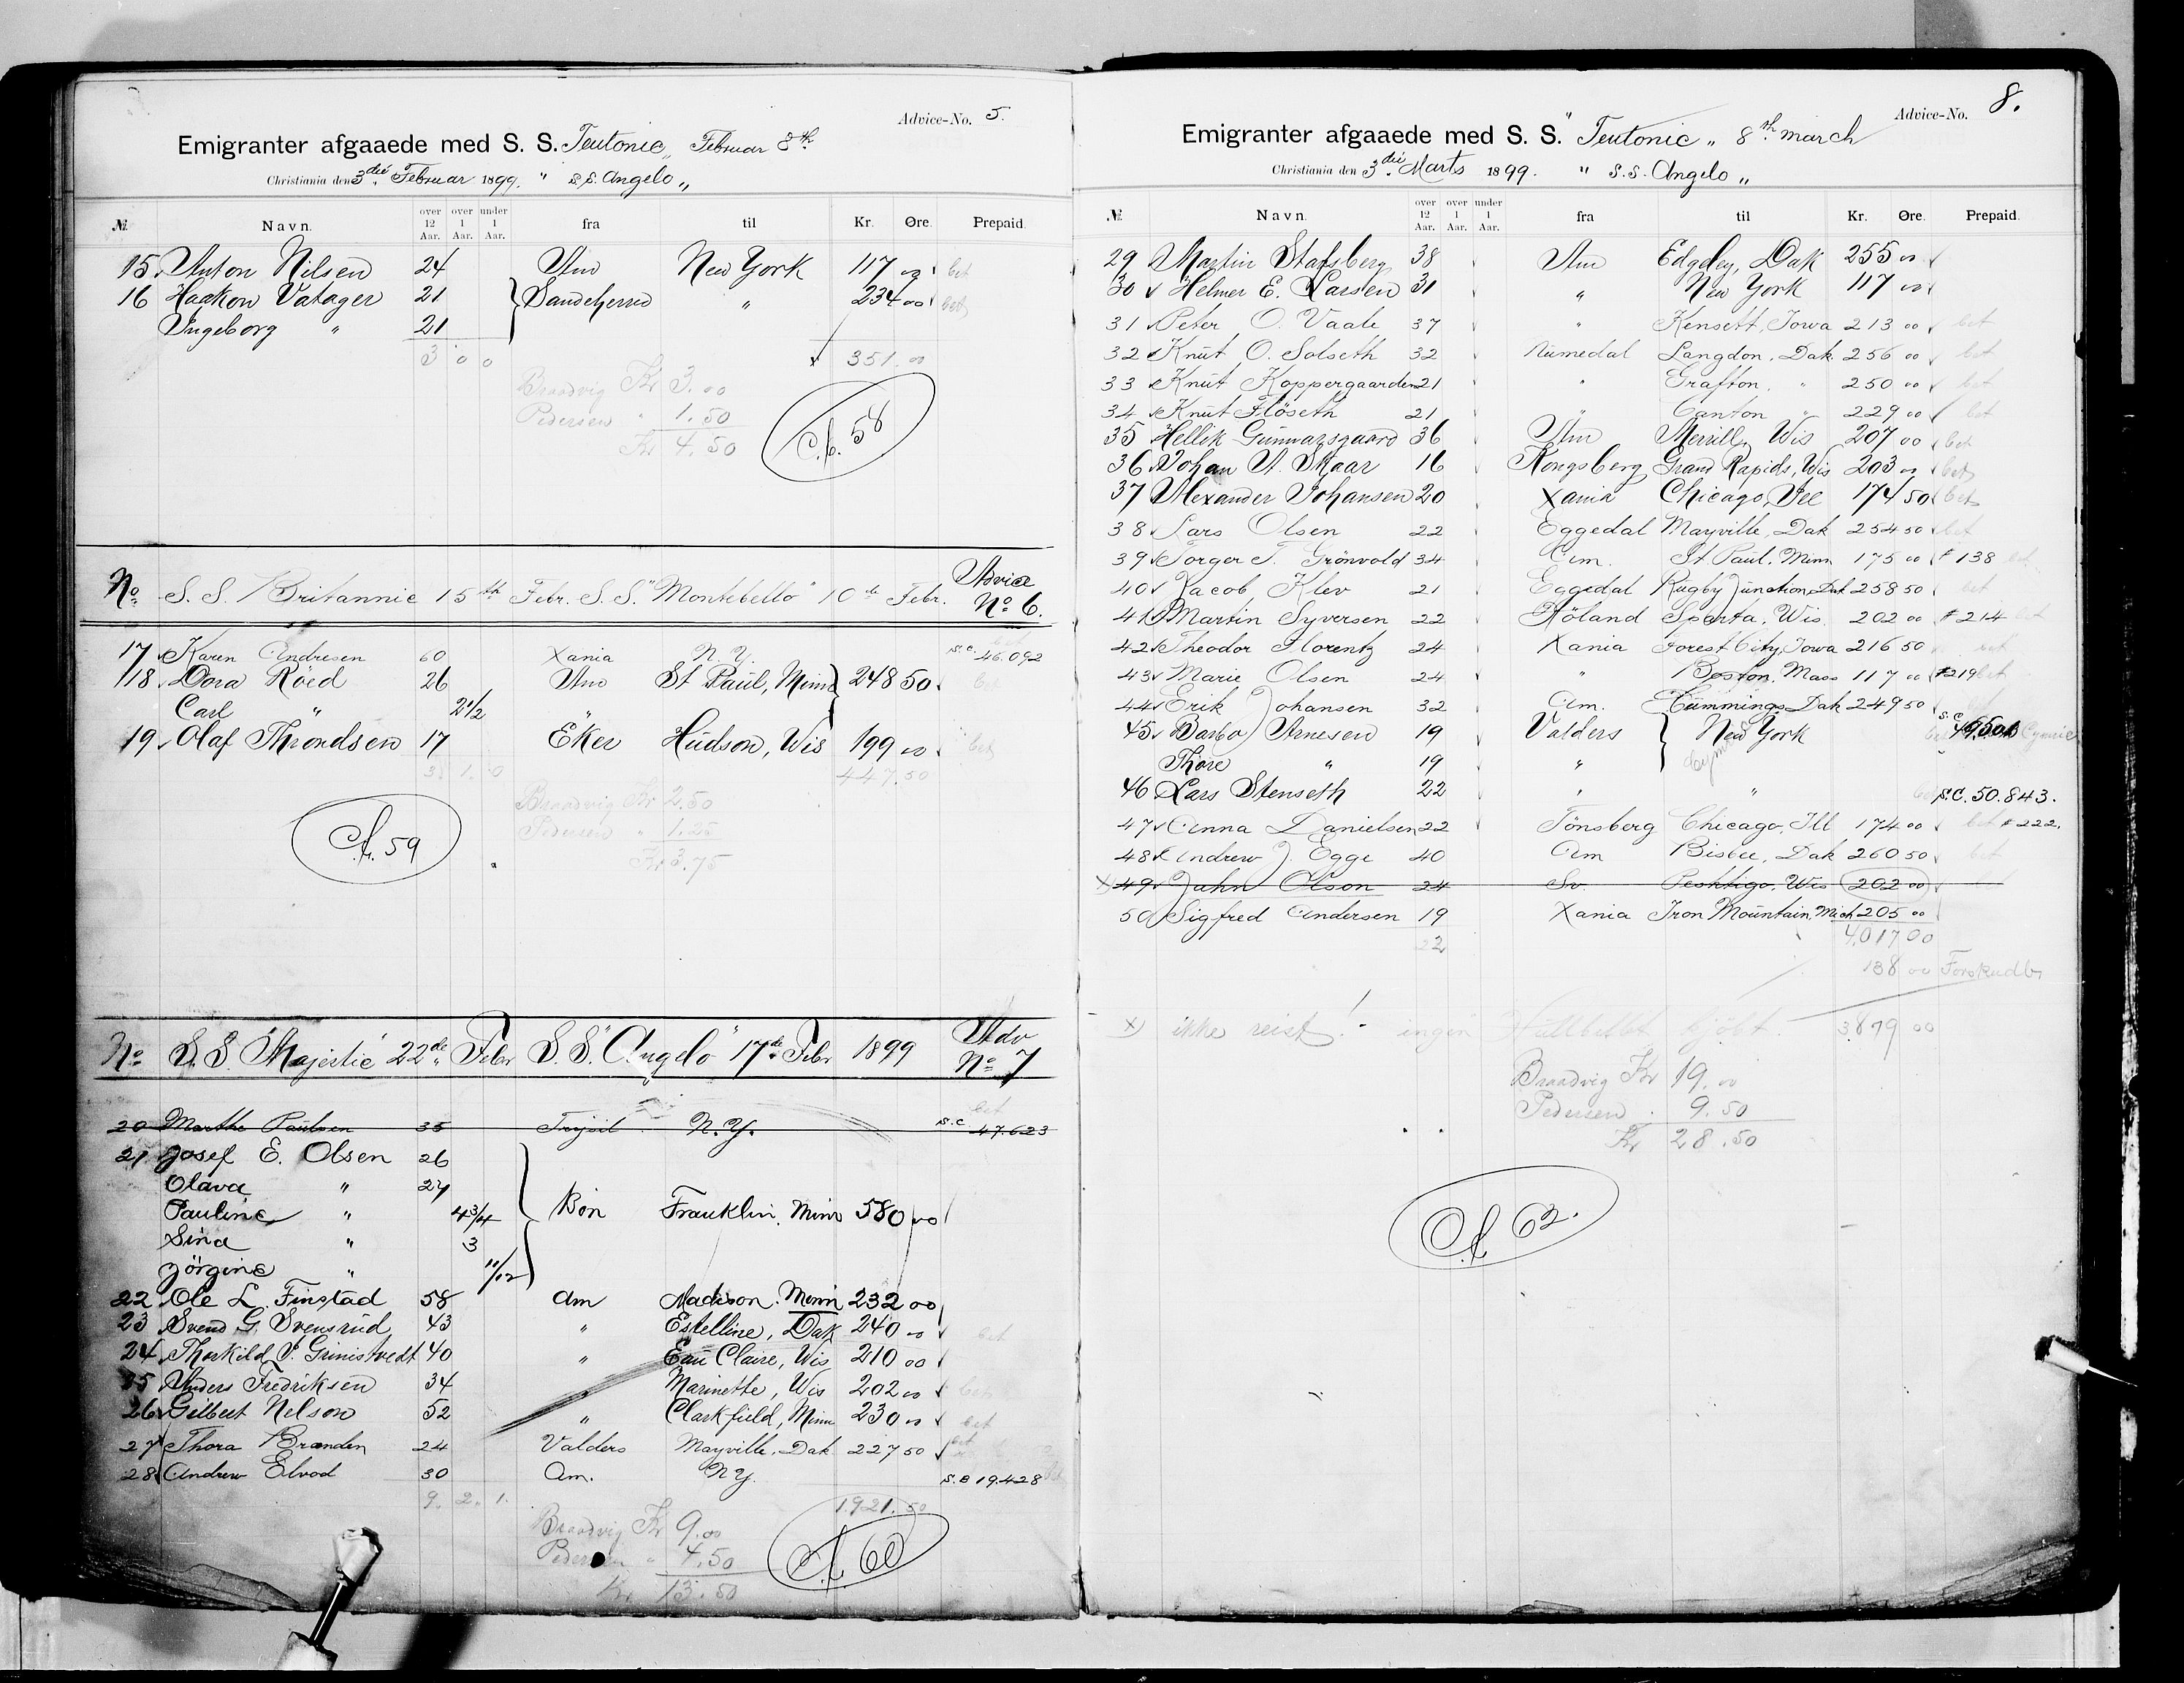 Advice-No. 5.
Emigranter afgaaede med S. S. Teutonic„ Februar 8th
Christiania den 3die Februar 1899. " S.S. Angelo„
№ Navn. over 12 Aar. over 1 Aar. under 1 Aar. fra til Kr. Øre. Prepaid.
15 Anton Nilsen 24 Am New York 117 00 bet
16 Haakon Vatager 21 Sandeherred " 234 00 bet
Ingeborg " 21
3 0 0 351.00
Braadvig Kr 3.00
Pedersen " 1.50
Kr 4.50
C.f. 58
No S. S. Britannic 15th Febr. S. S. "Montebello" 10de Febr. Advice No 6.
17 Karen Andresen 60 Xania N. Y. S.C. 46.092
18 Dora Röed 26 Am St Paul, Minn 248 50 bet
Carl " 2 1/2 "
19 Olaf Throndsen 17 Eker Hudson, Wis 199 00 bet
3 1 0 447.50
Braadvig Kr 2.50
Pedersen " 1.25
Kr 3.75
C.f. 59
No S. S. "Majestic" 22de Febr S. S. "Angelo" 17de Febr 1899 Adv No 7
bet
20 Marthe Paulsen 35 Trysil N. Y. S.C 47.623
21 Josef E. Olsen 26
Olava " 27
Pauline " 4 3/4 Bön Franklin, Minn 580 00
Sina " 3
Jörgine " 11/12
22 Ole L. Finstad 58 Am Madison. Minn 232 00
23 Svend G. Svensrud 43 " Estelline, Dak 240 00 bet
24 Thorkild P. Grinistvedt 40 " Eau Claire, Wis 210 00
25 Anders Fredriksen 34 " Marinette, Wis 202 00 bet
26 Gilbert Nelson 52 " Clarkfield, Minn 230 00 bet
27 Thora Branden 24 Valders Mayville, Dak 227 50 bet
28 Andrew Elvod 30 Am. N Y. S.C 19.428
9. 2. 1. 1921.50
Braadvig Kr 9.00
Pedersen " 4.50
Kr 13.50
C.f. 60
Advice-No. 8.
Emigranter afgaaede med S. S. "Teutonic„ 8th march
Christiania den 3die Marts 1899. " S.S. Angelo„
№ Navn. over 12 Aar. over 1 Aar. under 1 Aar. fra til Kr. Øre. Prepaid.
29 Martin Stafsberg 38 Am Edgeley, Dak 255 00
30 Helmer E. Larsen 31 " New York 117 00
31 Peter O. Vaale 37 " Kensett, Iowa 213 00 bet
32 Knut O. Solseth 32 Numedal Langdon, Dak 256 00 bet
33 Knut Koppergaarden 21 " Grafton, " 250 00 bet
34 Knut Flöseth 21 " Canton " 229 00 bet
35 Hellik Gunnarsgaard 36 Am Merrill, Wis 207 00 bet
36 Johan A. Skaar 16 Kongsberg Grand Rapids, Wis 203 00 bet
37 Alexander Johansen 20 Xania Chicago, Ill 174 50 bet
38 Lars Olsen 22 Eggedal Mayville, Dak 254 50 bet
39 Torger T. Grönvold 34 Am. St Paul, Minn 175 00 # 138 bet
40 Jacob Klev 21 Eggedal Rugby Junction, Dak 258 50 bet
41 Martin Syversen 22 Höland Sparta, Wis. 202 00 # 214 bet
42 Theodor Florentz 24 Xania Forest City, Iowa 216 50 bet
43 Marie Olsen 24 " Boston, Mass 117 00 #219 bet
44 Erik Johansen 32 Am. Cummings, Dak 249 50
45 Barbo Arnesen 19 Valders New York S.C. Cymric
Thore " 19 "
46 Lars Stenseth 22 " " bet S.C. 50.843.
47 Anna Danielsen 22 Tönsberg Chicago, Ill 174 00 bet # 222.
48 Andrew J. Egge 40 Am Bisbee, Dak 260 50 bet
x) 49 John Olson 24 Sv. Peshtigo, Wis 202 00
50 Sigfred Andersen 19 Xania Iron Mountain, Mich 205 00
22 4017 00
138 00 Forskudb
x) ikke reist! - ingen billet 3879 00
Braadvig Kr 19.00
Pedersen " 9.50
Kr. 28.50
C.f. 62.